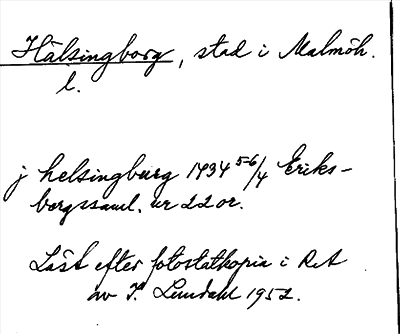 Hälsingborg, stad i Malmöh.
l.
j helsingburg 1434 5-6/4 Eriks-
bergssaml. nr 22 or.
Läst efter fotostatkopia i RA
av I. Lundahl 1952.